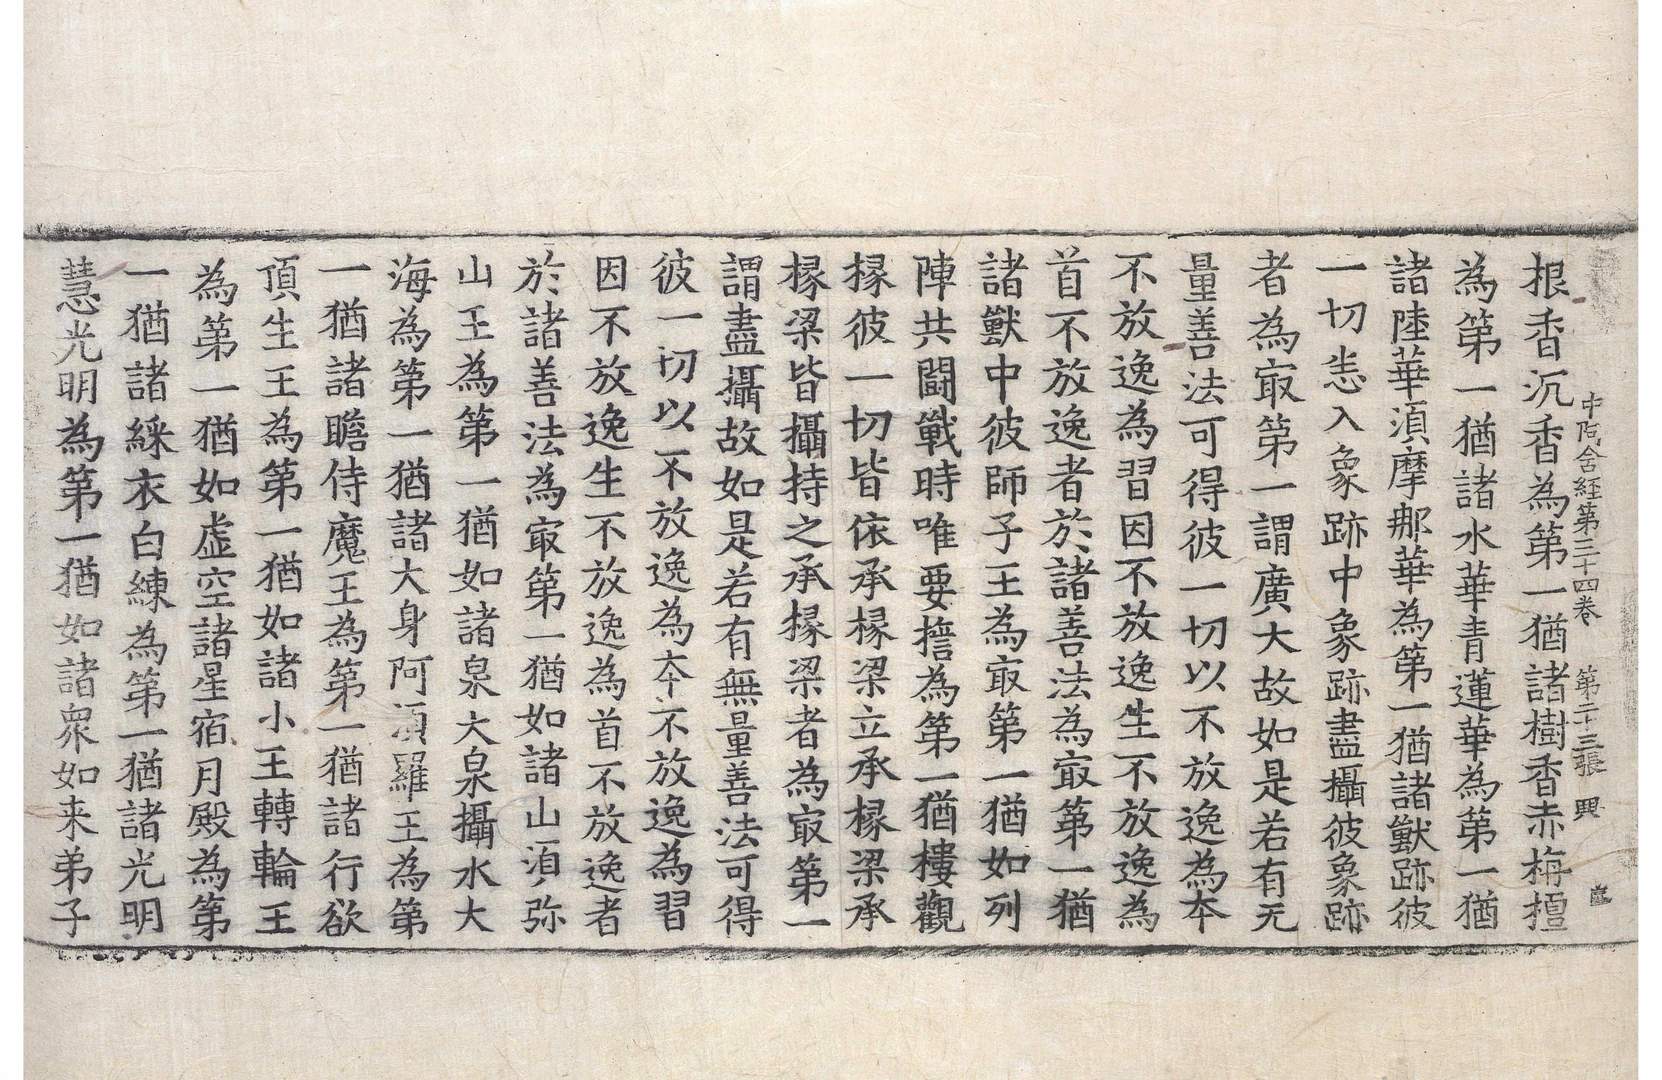 中阿含経第三十四卷 第二十三張 興
根香沉香為第一猶諸樹香赤栴檀
為第一猶諸水華青蓮華為第一猶
諸陸華湏摩𨚗華為第一猶諸獸跡彼
一切悉入象跡中象跡盡攝彼象跡
者為㝡第一謂廣大故如是若有无
量善法可得彼一切以不放逸為夲
不放逸為習因不放逸生不放逸為
首不放逸者於諸善法為㝡第一猶
諸獸中彼師子王為㝡第一猶如列
陣共鬪戰時唯要擔為第一猶樓觀
椽彼一切皆依承椽梁立承椽梁承
椽梁皆攝持之承椽梁者為㝡第一
謂盡攝故如是若有無量善法可得
彼一切以不放逸為夲不放逸為習
因不放逸生不放逸為首不放逸者
於諸善法為㝡第一猶如諸山湏弥
山王為第一猶如諸泉大泉攝水大
海為第一猶諸大身阿湏羅王為第
一猶諸瞻侍魔王為第一猶諸行欲
頂生王為第一猶如諸小王轉輪王
為第一猶如虛空諸星宿月殿為第
一猶諸綵衣白練為第一猶諸光明
慧光明為第一猶如諸衆如来弟子